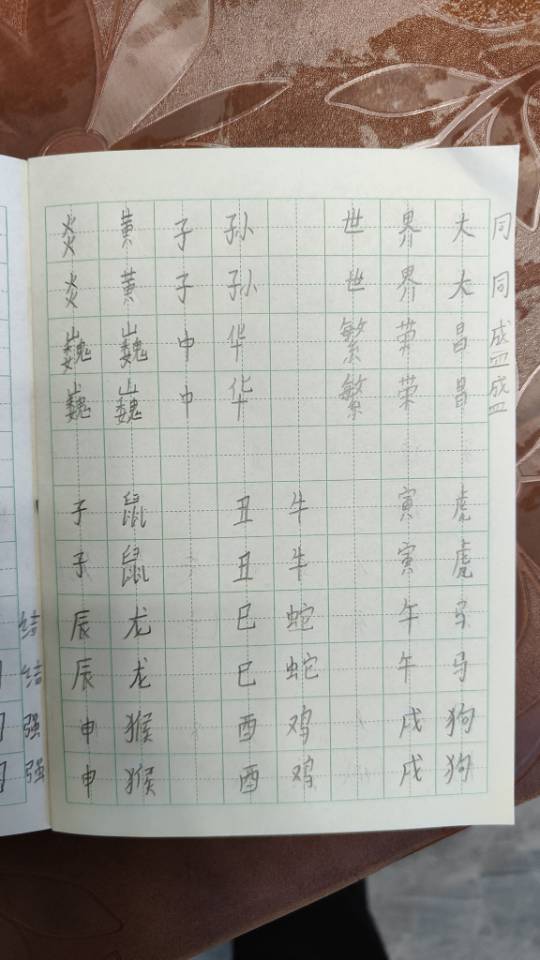 炎黄子孙 世界大同
炎黄子孙 世界大同
巍巍中华 繁荣昌盛
巍巍中华 繁荣昌盛
子鼠 丑牛 寅虎
子鼠 丑牛 寅虎
结 辰龙 巳蛇 午马
结 辰龙 巳蛇 午马
强 申猴 酉鸡 戌狗
强 申猴 酉鸡 戌狗